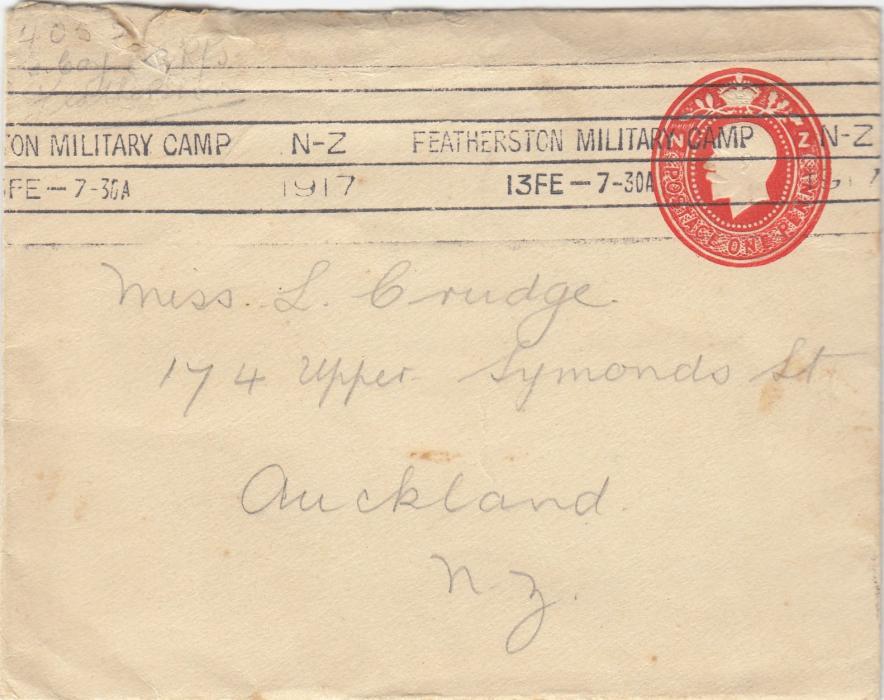 ON MILITARY CAMP N-Z FEATHERSTON MILITARY CAMP N-Z
FE — 7-30A 1917 13FE — 7-30A
N Z POSTAGE ONE PENNY
Miss. L. Crudge.
174 Upper Symonds St
Auckland.
N.Z.